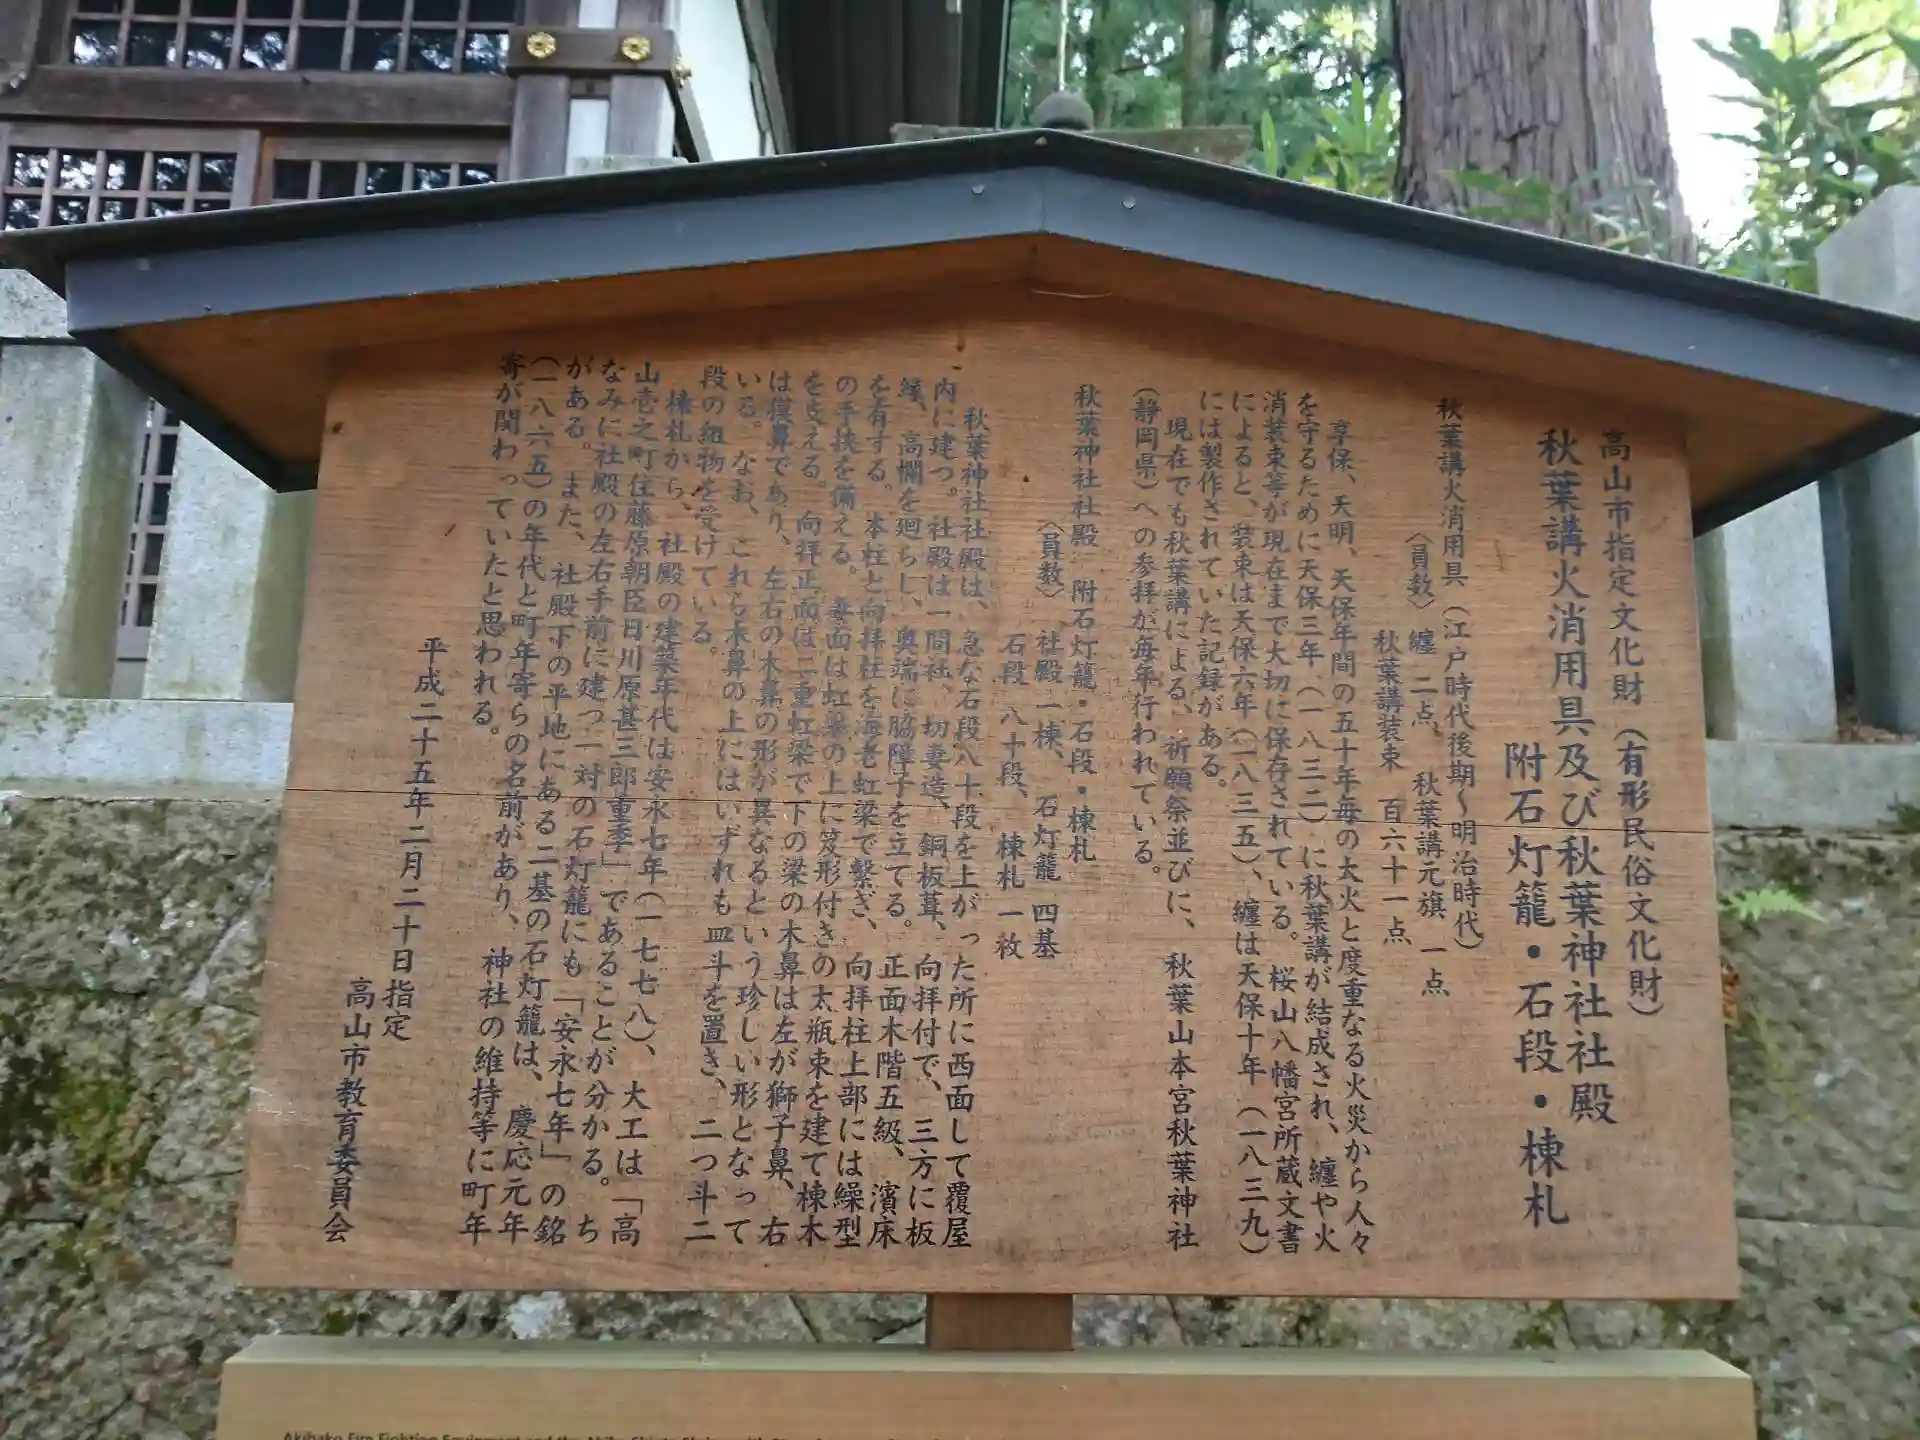 高山市指定文化財（有形民俗文化財）
秋葉講火消用具及び秋葉神社社殿
附石灯籠・石段・棟札
秋葉講火消用具（江戸時代後期～明治時代）
〈員数〉纏 二点、 秋葉講元旗 一点
秋葉講装束 百六十一点
享保、天明、天保年間の五十年毎の大火と度重なる火災から人々
を守るために天保三年（一八三二）に秋葉講が結成され、纏や火
消装束等が現在まで大切に保存されている。桜山八幡宮所蔵文書
によると、装束は天保六年（一八三五）、纏は天保十年（一八三九）
には製作されていた記録がある。
現在でも秋葉講による、祈願祭並びに、秋葉山本宮秋葉神社
（静岡県）への参拝が毎年行われている。
秋葉神社社殿 附石灯籠・石段・棟札
〈員数〉社殿 一棟、 石灯籠 四基
石段 八十段、 棟札 一枚
秋葉神社社殿は、急な石段八十段を上がった所に西面して覆屋
内に建つ。社殿は一間社、切妻造、銅板葺、向拝付で、三方に板
縁、高欄を廻らし、奥端に脇障子を立てる。正面木階五級、濱床
を有する。本柱と向拝柱を海老虹梁で繋ぎ、向拝柱上部には繰型
の手挟を備える。妻面は虹梁の上に笈形付きの太瓶束を建て棟木
を支える。向拝正面は二重虹梁で下の梁の木鼻は左が獅子鼻、右
は獏鼻であり、左右の木鼻の形が異なるという珍しい形となって
いる。なお、これら木鼻の上にはいずれも皿斗を置き、二つ斗二
段の組物を受けている。
棟札から、社殿の建築年代は安永七年（一七七八）、大工は「高
山壱之町住藤原朝臣日川原甚三郎重季」であることが分かる。ち
なみに社殿の左右手前に建つ一対の石灯籠にも「安永七年」の銘
がある。また、社殿下の平地にある二基の石灯籠は、慶応元年
（一八六五）の年代と町年寄らの名前があり、神社の維持等に町年
寄が関わっていたと思われる。
平成二十五年二月二十日指定
高山市教育委員会